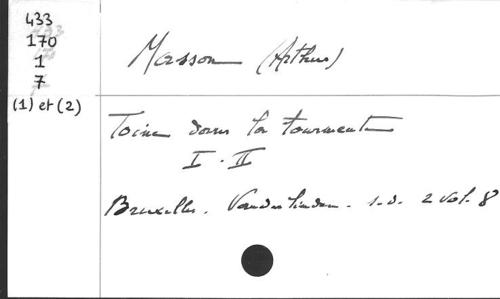 433
170
1
7
(1) et (2)
Masson (Arthur)
Toine dans la tourmente
I - II
Bruxelles. Vanderlinden. s.d. 2 vol. 8